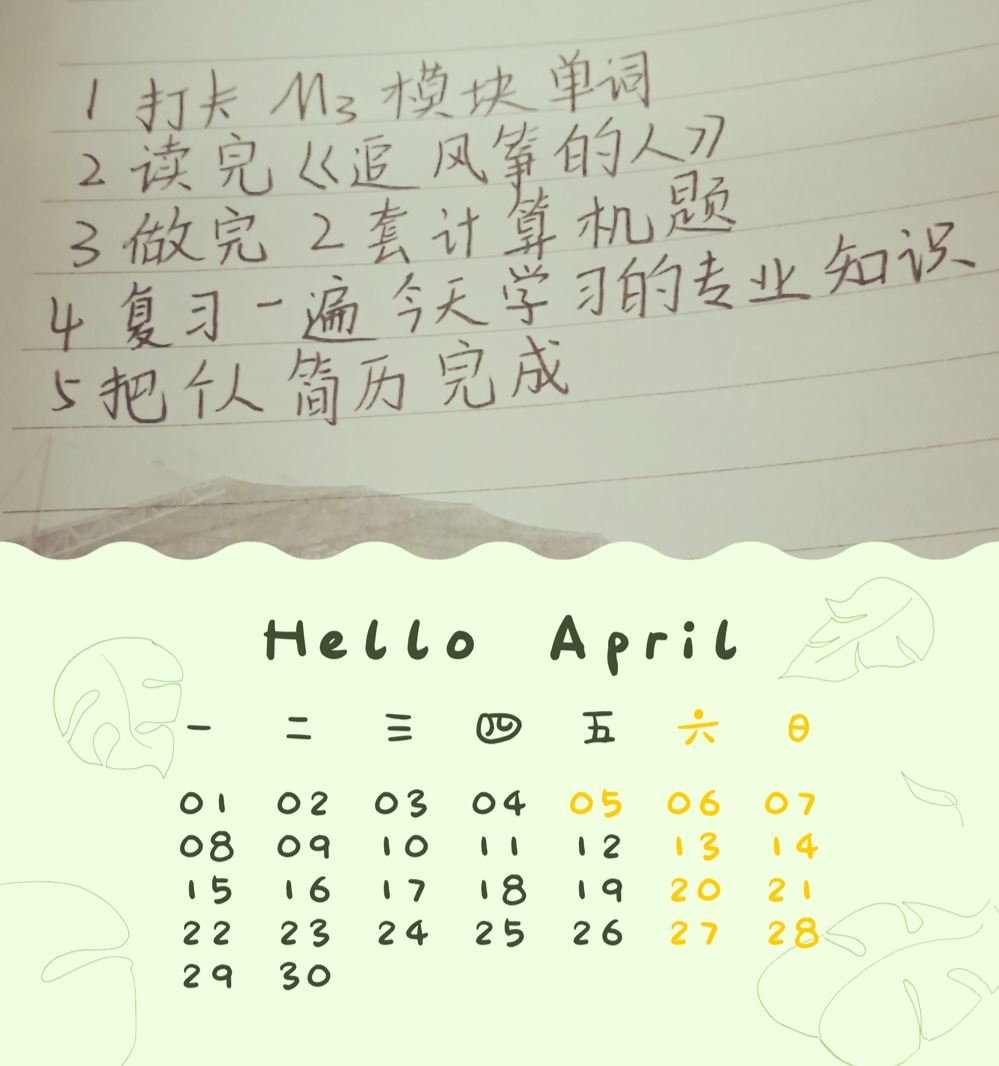 1 打卡 M3 模块单词
2 读完《追风筝的人》
3 做完 2套计算机题
4 复习一遍今天学习的专业知识
5 把个人简历完成
Hello April
一 二 三 四 五 六 日
01 02 03 04 05 06 07
08 09 10 11 12 13 14
15 16 17 18 19 20 21
22 23 24 25 26 27 28
29 30